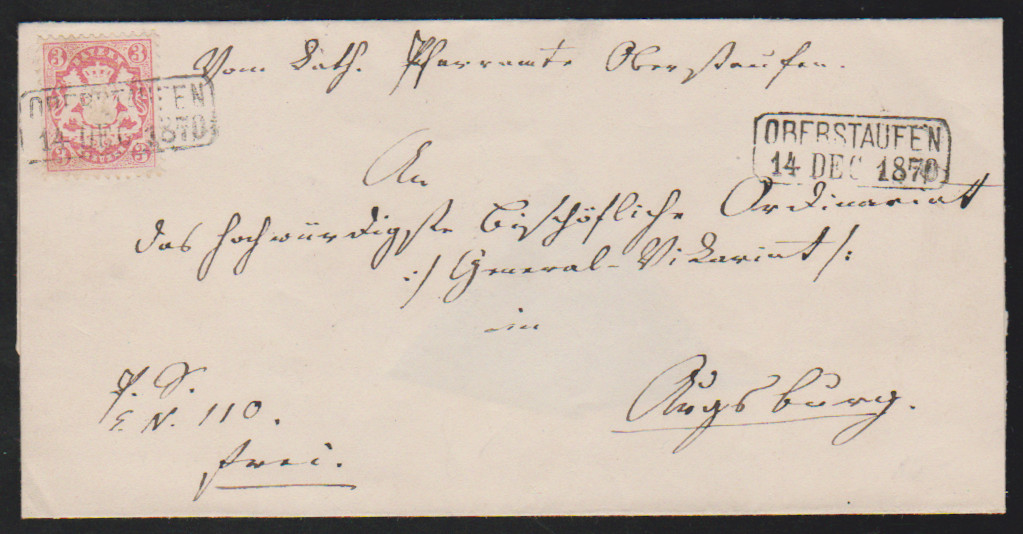 3 BAYERN 3
Vom Kath. Pfarramte Oberstaufen.
OBERSTAUFEN
14 DEC 1870
3 3
OBERSTAUFEN
14 DEC 1870
An
das hochwürdigste Bischöfliche Ordinariat
:/ General-Vikariat /:
in
P. S.
E. N. 110.
Augsburg.
frei.